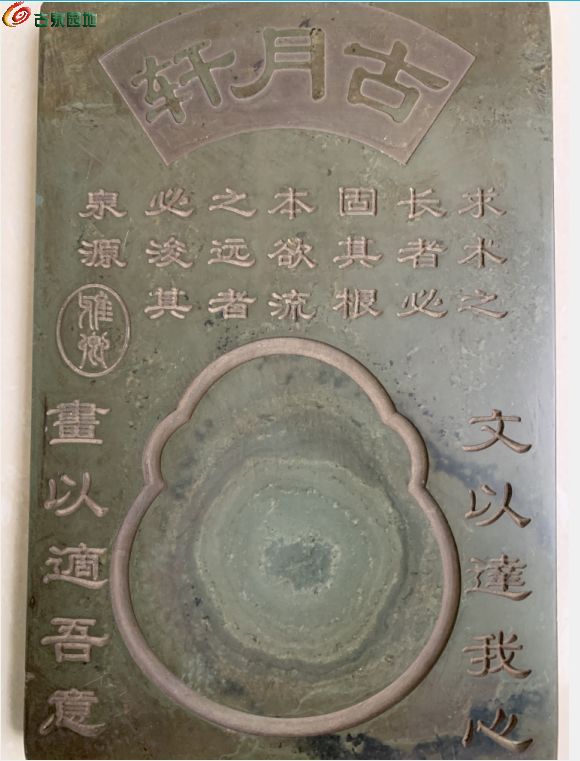 古泉园地
古月轩
求木之
长者必
固其根
本欲流
之远者
必浚其
泉源
文以達我心
畫以適吾意